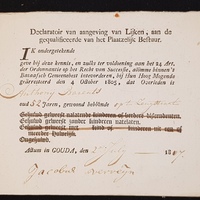 Declaratoir van aangeving van Lijken, aan de
gequalificeerde van het Plaatzelijk Bestuur.
IK ondergetekende
geve bij deze kennis, en zulks ter voldoening aan het 24 Art.
der Ordonnantie op het Recht van Successie, alomme binnen 't
Bataafsch Gemeenebest in te vorderen, bij Hun Hoog Mogende
gearresteerd den 4 October 1805, dat Overleden is
Anthony
oud 52 Jaren, gewoond hebbende
Gehuwd geweest nalatende kinderen of verdere descendenten.
Gehuwd geweest zonder kinderen nalaten.
Gehuwd geweest met kind of kinderen uit een of
meerder Huwelijk.
Ongehuwd.
Actum in GOUDA, den 27 July 1807
Jacobus